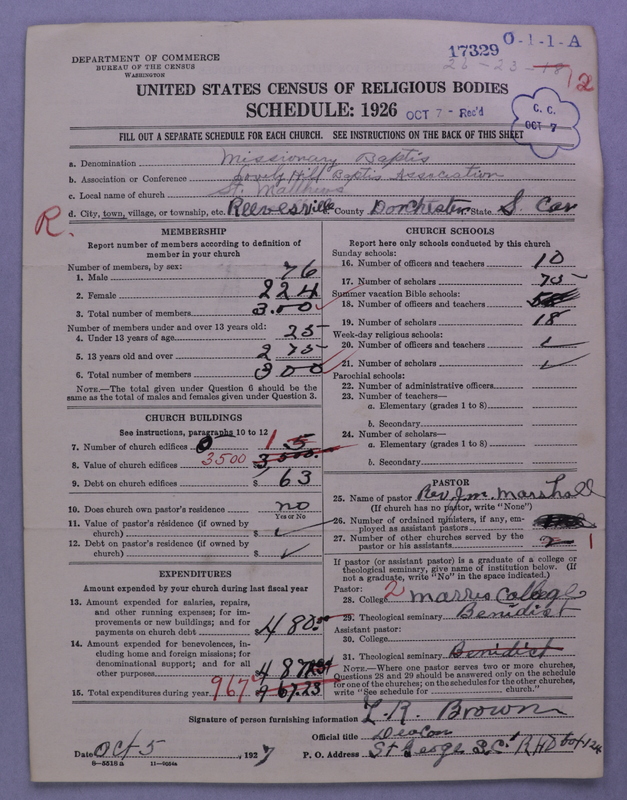 DEPARTMENT OF COMMERCE
BUREAU OF THE CENSUS
WASHINGTON
17329 O-1-1-A
26-23-18 2
UNITED STATES CENSUS OF RELIGIOUS BODIES
SCHEDULE: 1926
OCT 7 - Rec'd
C. C.
OCT 7
FILL OUT A SEPARATE SCHEDULE FOR EACH CHURCH. SEE INSTRUCTIONS ON THE BACK OF THIS SHEET
a. Denomination Missionary Baptis
b. Association or Conference Lovely Hill Baptis Association
c. Local name of church St. Matthews
d. City, town, village, or township, etc. Reevesville County Dorchester State S. Car
R.
MEMBERSHIP
Report number of members according to definition of
member in your church
Number of members, by sex:
1. Male 76
2. Female 224
3. Total number of members 300
Number of members under and over 13 years old:
4. Under 13 years of age 25
5. 13 years old and over 275
6. Total number of members 300
NOTE.—The total given under Question 6 should be
same as the total of males and females given under Question 3.
CHURCH BUILDINGS
See instructions, paragraphs 10 to 12
7. Number of church edifices 1 5
8. Value of church edifices 3500 $ 3,500.
9. Debt on church edifices $ 63
10. Does church own pastor's residence no
Yes or No
11. Value of pastor's residence (if owned by
church) $ ✓
12. Debt on pastor's residence (if owned by
church) $ ✓
EXPENDITURES
Amount expended by your church during last fiscal year
13. Amount expended for salaries, repairs,
and other running expenses; for im-
provements or new buildings; and for
payments on church debt 480.00
14. Amount expended for benevolences, in-
cluding home and foreign missions; for
denominational support; and for all
other purposes 487.23
15. Total expenditures during year 967 967.23
CHURCH SCHOOLS
Report here only schools conducted by this church
Sunday schools:
16. Number of officers and teachers 10
17. Number of scholars 75
Summer vacation Bible schools:
18. Number of officers and teachers
19. Number of scholars 18
Week-day religious schools:
20. Number of officers and teachers ✓
21. Number of scholars ✓
Parochial schools:
22. Number of administrative officers
23. Number of teachers—
a. Elementary (grades 1 to 8)
b. Secondary
24. Number of scholars—
a. Elementary (grades 1 to 8)
b. Secondary
PASTOR
25. Name of pastor Rev. J. M. Marshall
(If church has no pastor, write "None")
26. Number of ordained ministers, if any, em-
ployed as assistant pastors
27. Number of other churches served by the
pastor or his assistants 2 1
If pastor (or assistant pastor) is a graduate of a college or
theological seminary, give name of institution below. (If
not a graduate, write "No" in the space indicated.)
Pastor:
28. College 2 Marris College
29. Theological seminary Benidist
Assistant pastor:
30. College
31. Theological seminary Benidist
NOTE.—Where one pastor serves two or more churches,
Questions 28 and 29 should be answered only on the schedule
for one of the churches; on the schedules for the other churches,
write "See schedule for church."
Signature of person furnishing information L. R. Brown
Official title Deacon
Date Oct-5, 1927 P. O. Address St George S.C. RFD box 124
8-5518 a 11-9264a